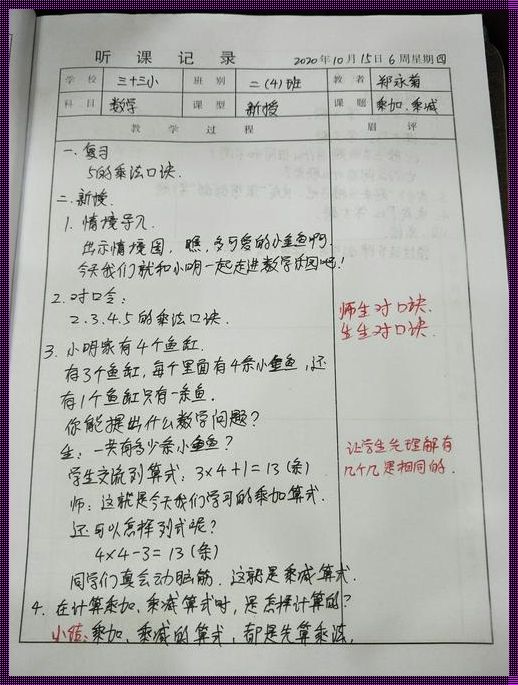 听课记录 2020年10月15日6周星期四
学校 三十三小 班别 二(4)班 教者 郑永菊
科目 数学 课型 新授 课题 乘加、乘减
教学过程 眉评
一、复习
5的乘法口诀.
二、新授
1. 情境导入.
出示情境图,瞧,多可爱的小金鱼啊.
今天我们就和小明一起走进数学乐园吧!
2. 对口令:
2.3.4.5的乘法口诀.
师生对口诀.
生生对口诀.
3. 小明家有4个鱼缸.
有3个鱼缸,每个里面有4条小金鱼,还
有1个鱼缸只有一条鱼.
你能提出什么数学问题?
生:一共有多少条小金鱼?
让学生先理解有
几个几是相同的.
学生交流列算式:3×4+1=13(条)
师:这就是今天我们学习的乘加算式.
还可以怎样列式呢?
4×4-3=13(条)
同学们真会动脑筋.这就是乘减算式.
4. 在计算乘加、乘减算式时,是怎样计算的?
小结:乘加、乘减的算式,都是先算乘法,